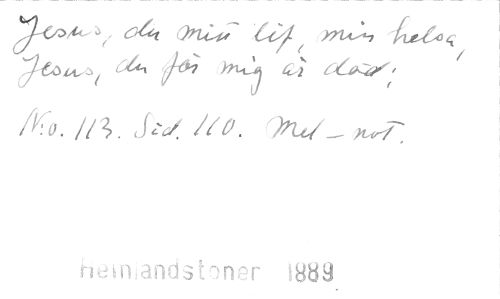 Jesus, du mitt lif, min helsa,
Jesus, du för mig är död;
N:o. 113. Sid. 110. Mel-not.
Hemlandstoner 1889